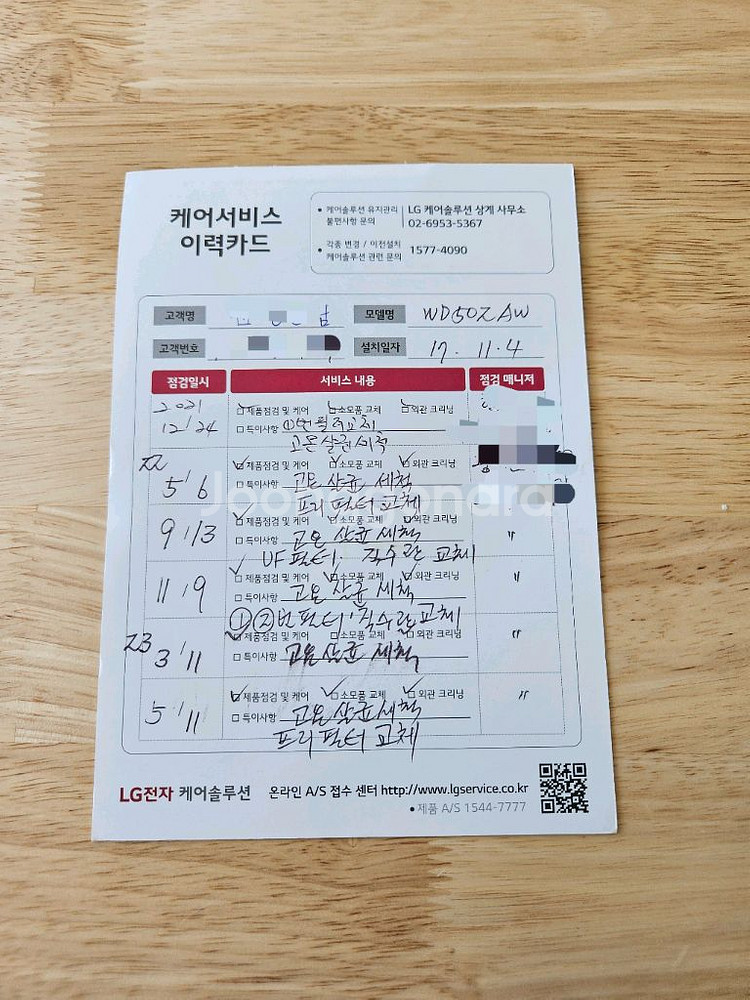 케어서비스
이력카드
• 케어솔루션 유지관리 불편사항 문의 LG 케어솔루션 상계 사무소 02-6953-5367
• 각종 변경 / 이전설치 케어솔루션 관련 문의 1577-4090
고객명 모델명 WD502AW
고객번호 설치일자 17. 11. 4
점검일시 서비스 내용 점검 매니저
2021 제품점검 및 케어 소모품 교체 외관 크리닝
12/24 특이사항 ①번 필터교체
고온살균세척
22 제품점검 및 케어 소모품 교체 외관 크리닝
5/6 특이사항 고온살균 세척
프리필터 교체
제품점검 및 케어 소모품 교체 외관 크리닝
9/13 특이사항 고온 살균세척 〃
UF필터, 직수관 교체
제품점검 및 케어 소모품 교체 외관 크리닝
11/9 특이사항 고온살균 세척 〃
①②번 필터, 직수관교체
23 제품점검 및 케어 소모품 교체 외관 크리닝
3/11 특이사항 고온살균 세척 〃
제품점검 및 케어 소모품 교체 외관 크리닝
5/11 특이사항 고온살균세척 〃
프리필터 교체
LG전자 케어솔루션 온라인 A/S 접수 센터 http://www.lgservice.co.kr
• 제품 A/S 1544-7777
Joongonara